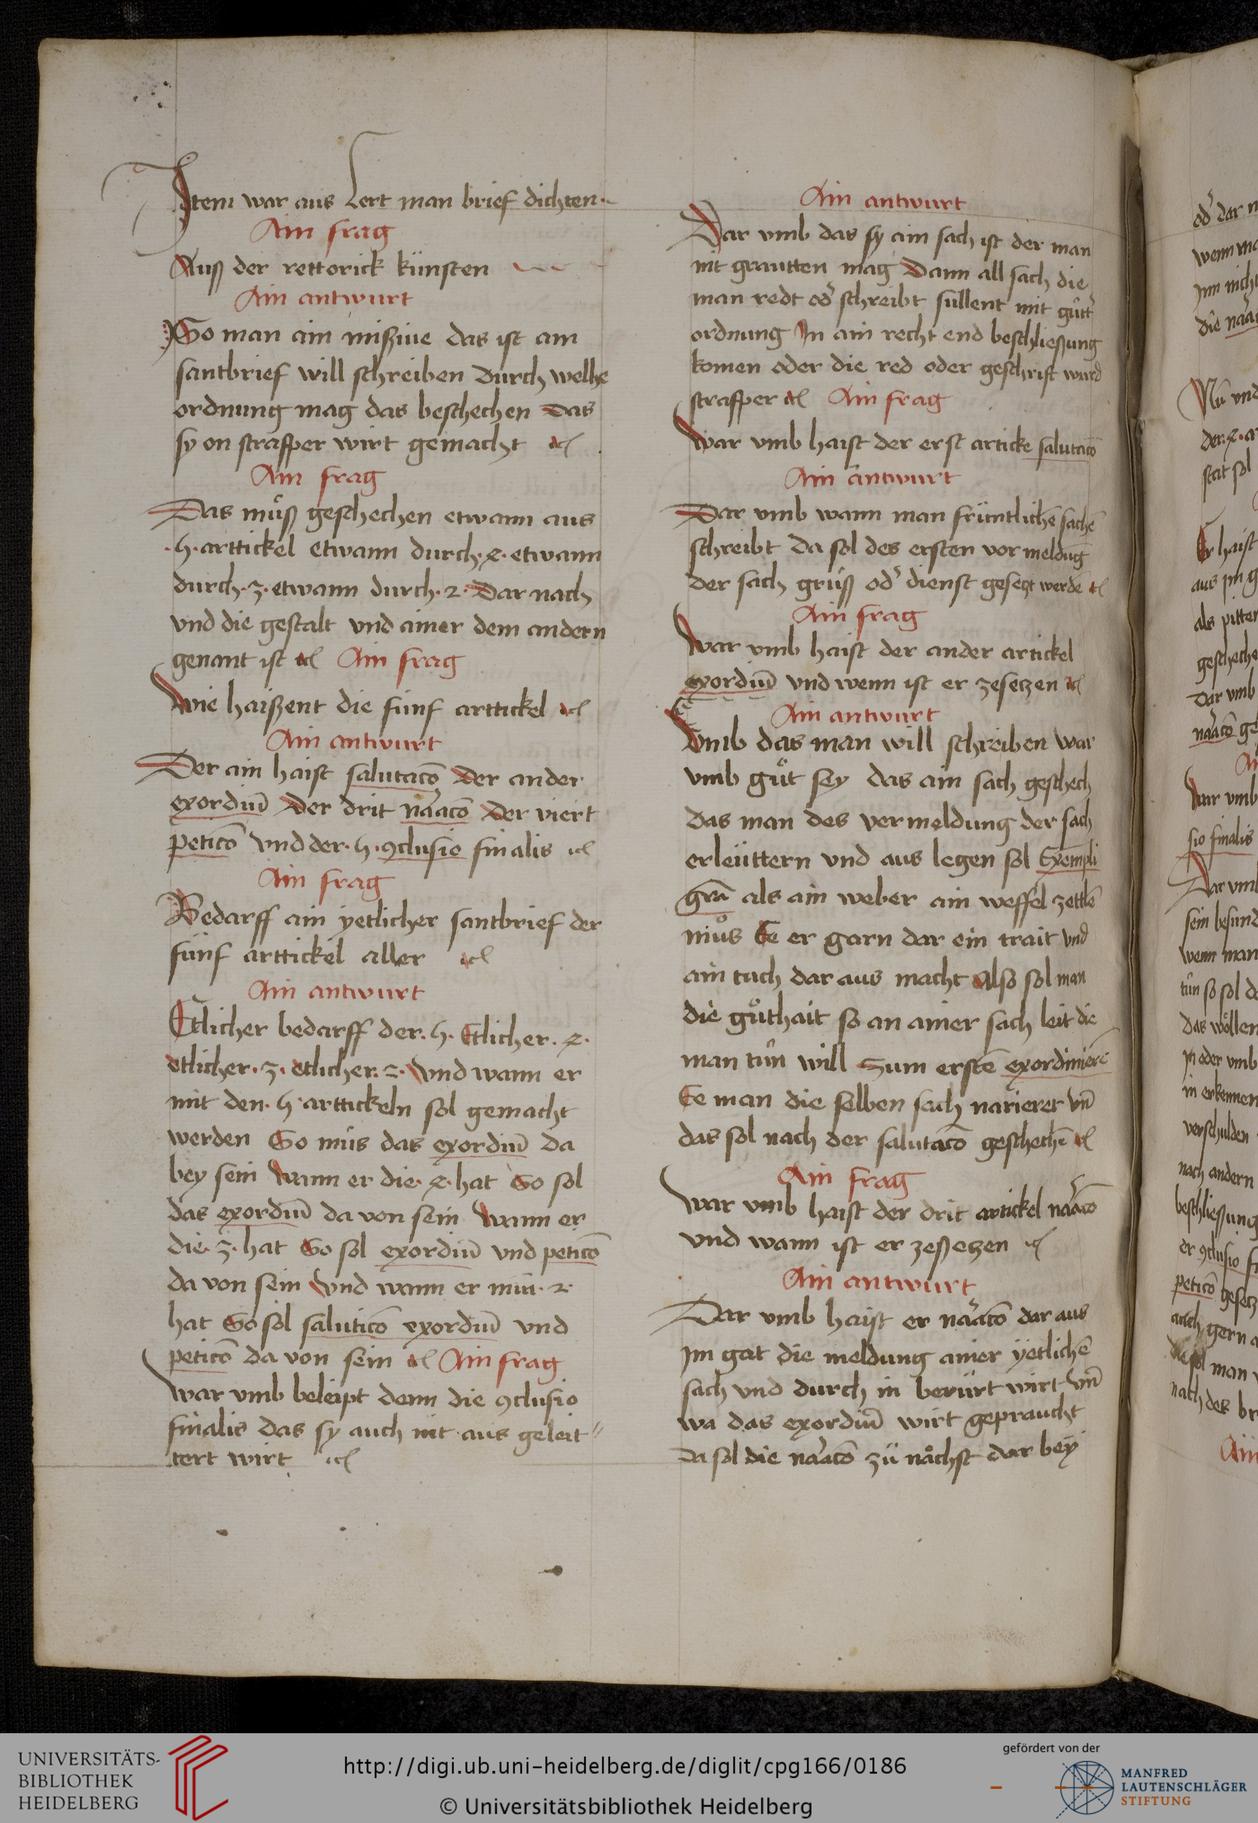 Item war aus Lert man brief dichten
Ain frag
Auß der rettorick künsten
Ain antwurt
So man ain missiue das ist am
santbrief will schreiben durch welhe
ordnung mag das beschechen Das
sy on straffper wirt gemacht ꝛc
Ain frag
Das muͦß geschechen etwann aus
.5. arttickel etwann durch .4. etwann
durch .3. etwann durch .2. Dar nach
vnd die gestalt vnd ainer dem andern
genant ist ꝛc Ain frag
Wie haissent die fünf arttickel ꝛc
Ain antwurt
Der ain haist salutacō Der ander
exordiū Der drit nar̄acō Der viert
peticō vnd der .5. ꝯclusio finalis ꝛc
Ain frag
Bedarff ain yetlicher santbrief der
fünf arttickel aller ꝛc
Ain antwurt
Etlicher bedarff der .5. Etlicher .4.
etlicher .3. etlicher .2. Vnd wann er
mit den .5. arttickeln sol gemacht
werden So müs das exordiū da
bey sein Wann er die .4. hat So sol
das exordiū da von sein Wann er
die .3. hat So sol exordiū vnd peticō
da von sein Vnd wann er nün .2.
hat So sol saluticō exordiū vnd
peticō da von sein ꝛc Ain frag
War vmb beleipt denn die ꝯclusio
finalis das sy auch nit aus geleit
tert wirt ꝛc
Ain antwurt
Dar vmb das sy ain sach ist der man
nit grautten mag Dann all sach die
man redt od̄ schreibt süllent mit gut̄
ordnung In ain recht end beschliessung
komen oder die red oder geschrift würd
straffper ꝛc Ain frag
War vmb haist der erst articke salutacō
Ain antwurt
Dar vmb wann man früntlichē sachē
schreibt da sol des ersten vor meldūg
der sach gruͦß od̄ dienst gesetzt werdē ꝛc
Ain frag
War vmb haist der ander artickel
exordiū vnd wenn ist er zesetzen ꝛc
Ain antwurt
Vmb das man will schreiben war
vmb guͦt sey das ain sach geschech
Das man des vermeldung der sach
erleüttern vnd aus legen sol Exempli
grā als ain weber ain weffel zettlē
muͦs Ee er garn dar ein trait vnd
ain tuch dar aus macht Also sol man
die guͦthait so an ainer sach leit die
man tün will Zum erstē exordinierē
Ee man die selben sach narieret vn̄
das sol nach der salutacō geschechē ꝛc
Ain frag
War vmb haist der drit artickel nar̄acō
vnd wann ist er zesetzen ꝛc
Ain antwurt
Dar vmb haist er nar̄acō dar aus
Im gat die meldung ainer yetlichē
sach vnd durch in berürt wirt vn̄
wa das exordiū wirt gepraucht
Da sol die nar̄acō zü nächst dar bey
UNIVERSITÄTS-
BIBLIOTHEK
HEIDELBERG
http://digi.ub.uni-heidelberg.de/diglit/cpg166/0186
© Universitätsbibliothek Heidelberg
gefördert von der
MANFRED
LAUTENSCHLÄGER
STIFTUNG